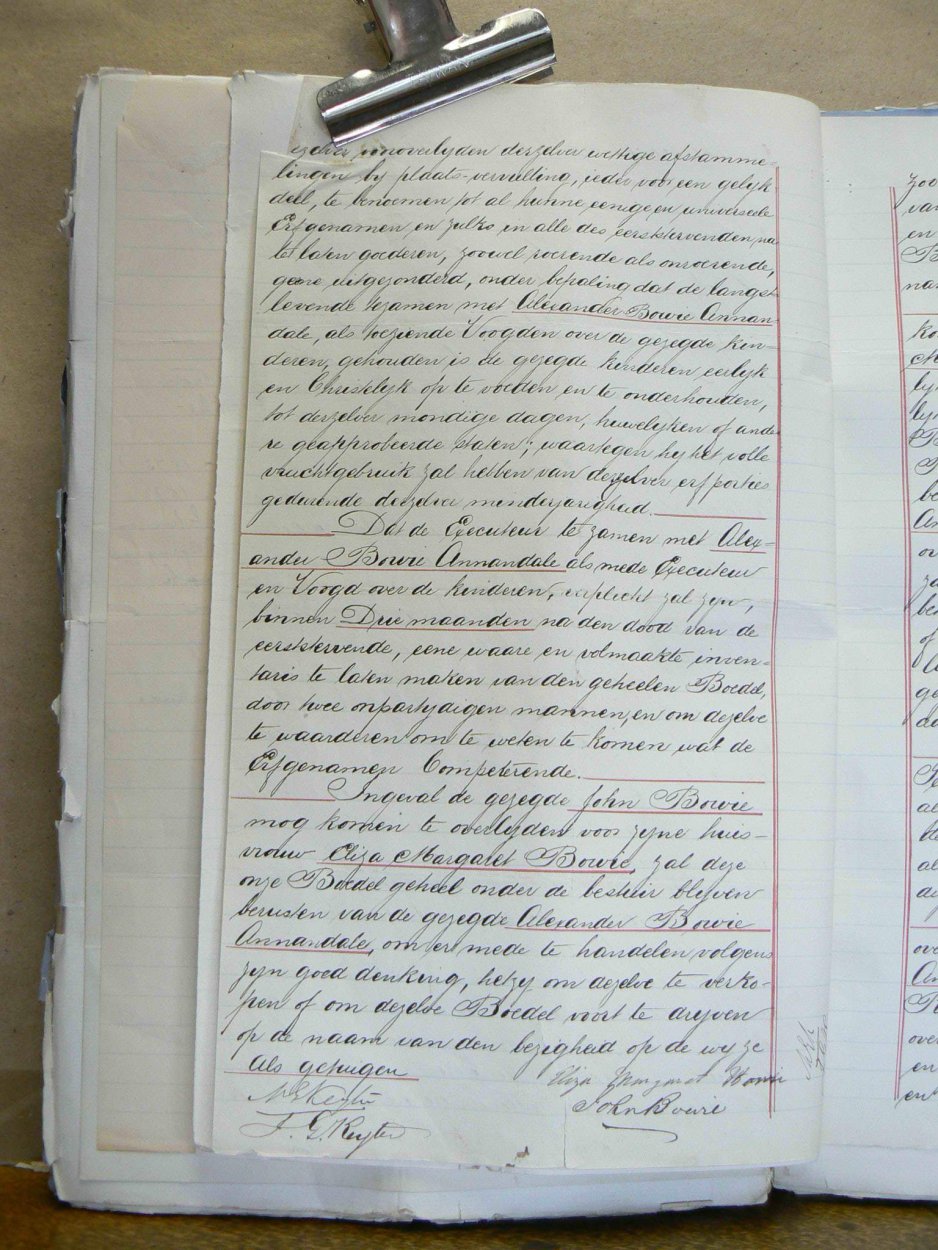 TAIWAN
vooroverlyden derzelver wettige afstamme-
lingen by plaats-vervulling, ieder voor een gelyk
deel, te benoemen tot al hunne eenige en universeele
Erfgenamen en zulks in alle des eerststervenden na
te laten goederen, zoowel roerende als onroerende,
geene uitgezonderd, onder bepaling dat de langst
levende tezamen met Alexander Bowie Annan-
dale, als toeziende Voogden over de gezegde kin-
deren, gehouden is de gezegde kinderen eerlyk
en Christelyk op te voeden en te onderhouden,
tot derzelver mondige dagen, huwelyken of ande-
re geapprobeerde staten; waartegen hy het volle
vruchtgebruik zal hebben van dezelver erfporties
gedurende derzelver minderjarigheid.
Dat de Executeur te zamen met Alex-
ander Bowie Annandale als mede Executeur
en Voogd over de kinderen, verplicht zal zyn,
binnen Drie maanden na den dood van de
eerststervende, eene waare en volmaakte inven-
taris te laten maken van den geheelen Boedel,
door twee onpartydigen mannen, en om dezelve
te waarderen om te weten te komen wat de
Erfgenamen Competerende.
Ingeval de gezegde John Bowie
mog komen te overlyden voor zyne huis-
vrouw Eliza Margaret Bowie, zal deze
onze Boedel geheel onder de bestuur blyven
berusten van de gezegde Alexander Bowie
Annandale, om er mede te handelen volgens
zyn goed denking, hetzy om dezelve te verko-
pen of om dezelve Boedel voort te dryven
op de naam van den bezigheid op de wyze
Als getuigen
Eliza Margaret Bowie
John Bowie
F. G. Keyter
zoo
van
en
na
ko
by
be
ov
za
be
of
ge
al
al
ove
ove
en
en